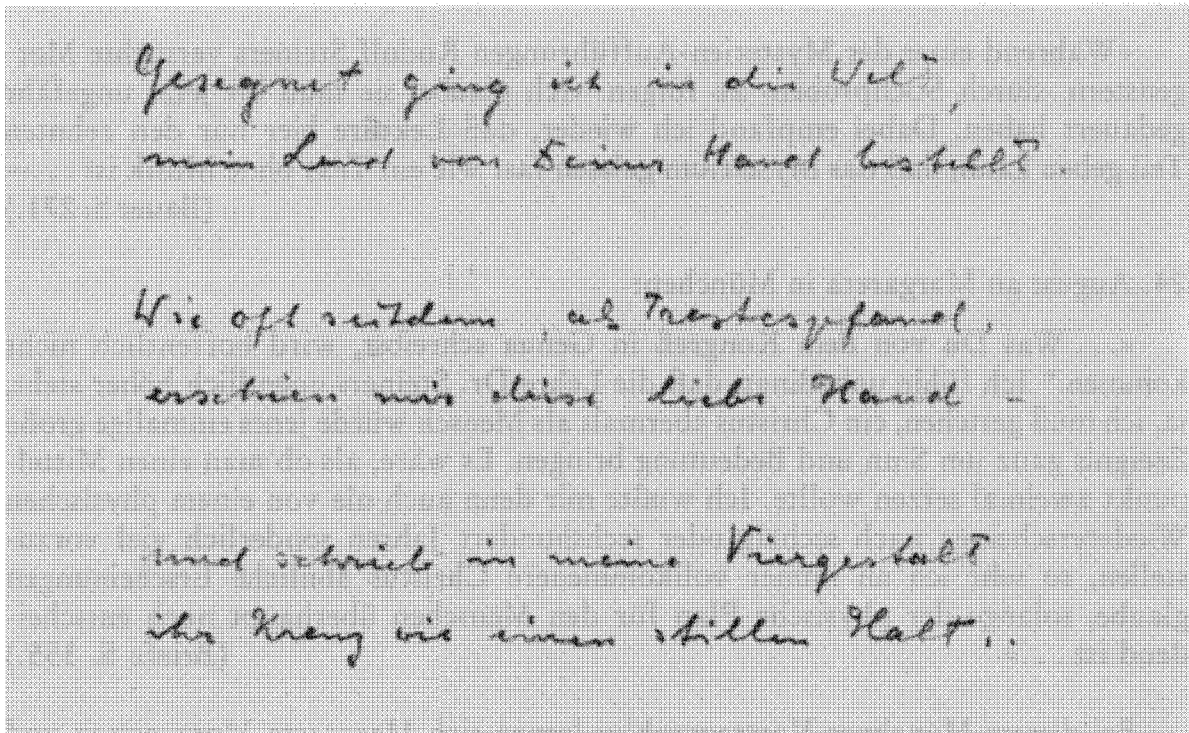 Gesegnet ging ich in die Welt,
mein Land von Deiner Hand bestellt.
Wie oft seitdem, als Trostespfand,
erschien mir diese liebe Hand –
und schrieb in meine Viergestalt
ihr Kreuz wie einen stillen Halt..